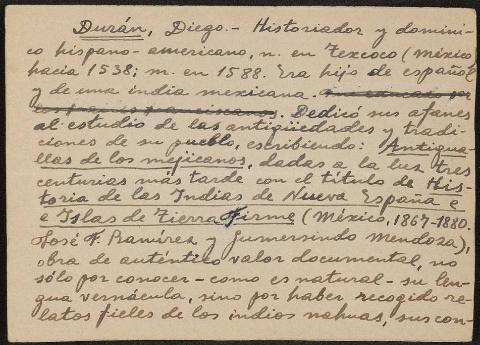 Durán, Diego.- Historiador y domini-
co hispano-americano, n. en Texcoco (México
hacia 1538; m. en 1588. Era hijo de español
y de una india mexicana.
Dedicó sus afanes
al estudio de las antigüedades y tradi-
ciones de su pueblo, escribiendo: Antigua-
llas de los mejicanos, dadas a la luz tres
centurias más tarde con el título de His-
toria de las Indias de Nueva España e
e Islas de Tierra Firme (México, 1867-1880.
José F. Ramírez y Gumersindo Mendoza),
obra de auténtico valor documental, no
sólo por conocer-como es natural-su len-
gua vernácula, sino por haber recogido re-
latos fieles de los indios nahuas, sus con-